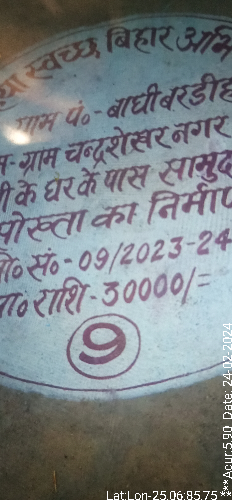 स्वच्छ बिहार अभि
ग्राम पं०- बाघी बरडीह
ग्राम चन्द्रशेखर नगर
के घर के पास सामुद
सोख्ता का निर्मा
सं०- 09/2023-24
रा० राशि- 30000/=
9
LatLon-25.06:85.75***Acur:5.90 Date: 24-02-2024